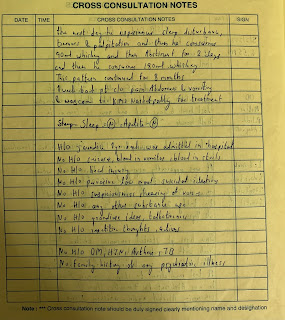 CROSS CONSULTATION NOTES
DATE TIME *** CROSS CONSULTATION NOTES SIGN
the next day he experience sleep disturbance,
tremors & palpitation and then he consumes
90ml whiskey and then Abstinent for 2 days
and then he consume 180ml whiskey
This pattern continued for 3 months
back pt c/o pain Abdomen & vomiting
& was came to KIMS Narketpally for treatment
Sleep - Appetite -
H/o jaundice admitted in hospital
No H/o seizure, blood in vomitus, blood in stools
No H/o head injury
No H/o low mood, suicidal ideation
No H/o suspiciousness, hearing of voices
No H/o any other substance use
No H/o grandiose ideas,
No H/o repetitive thoughts, actions
No H/o DM, HTN, Asthma, TB
No family history of any psychiatric illness
Note : *** Cross consultation note should be duly signed clearly mentioning name and designation